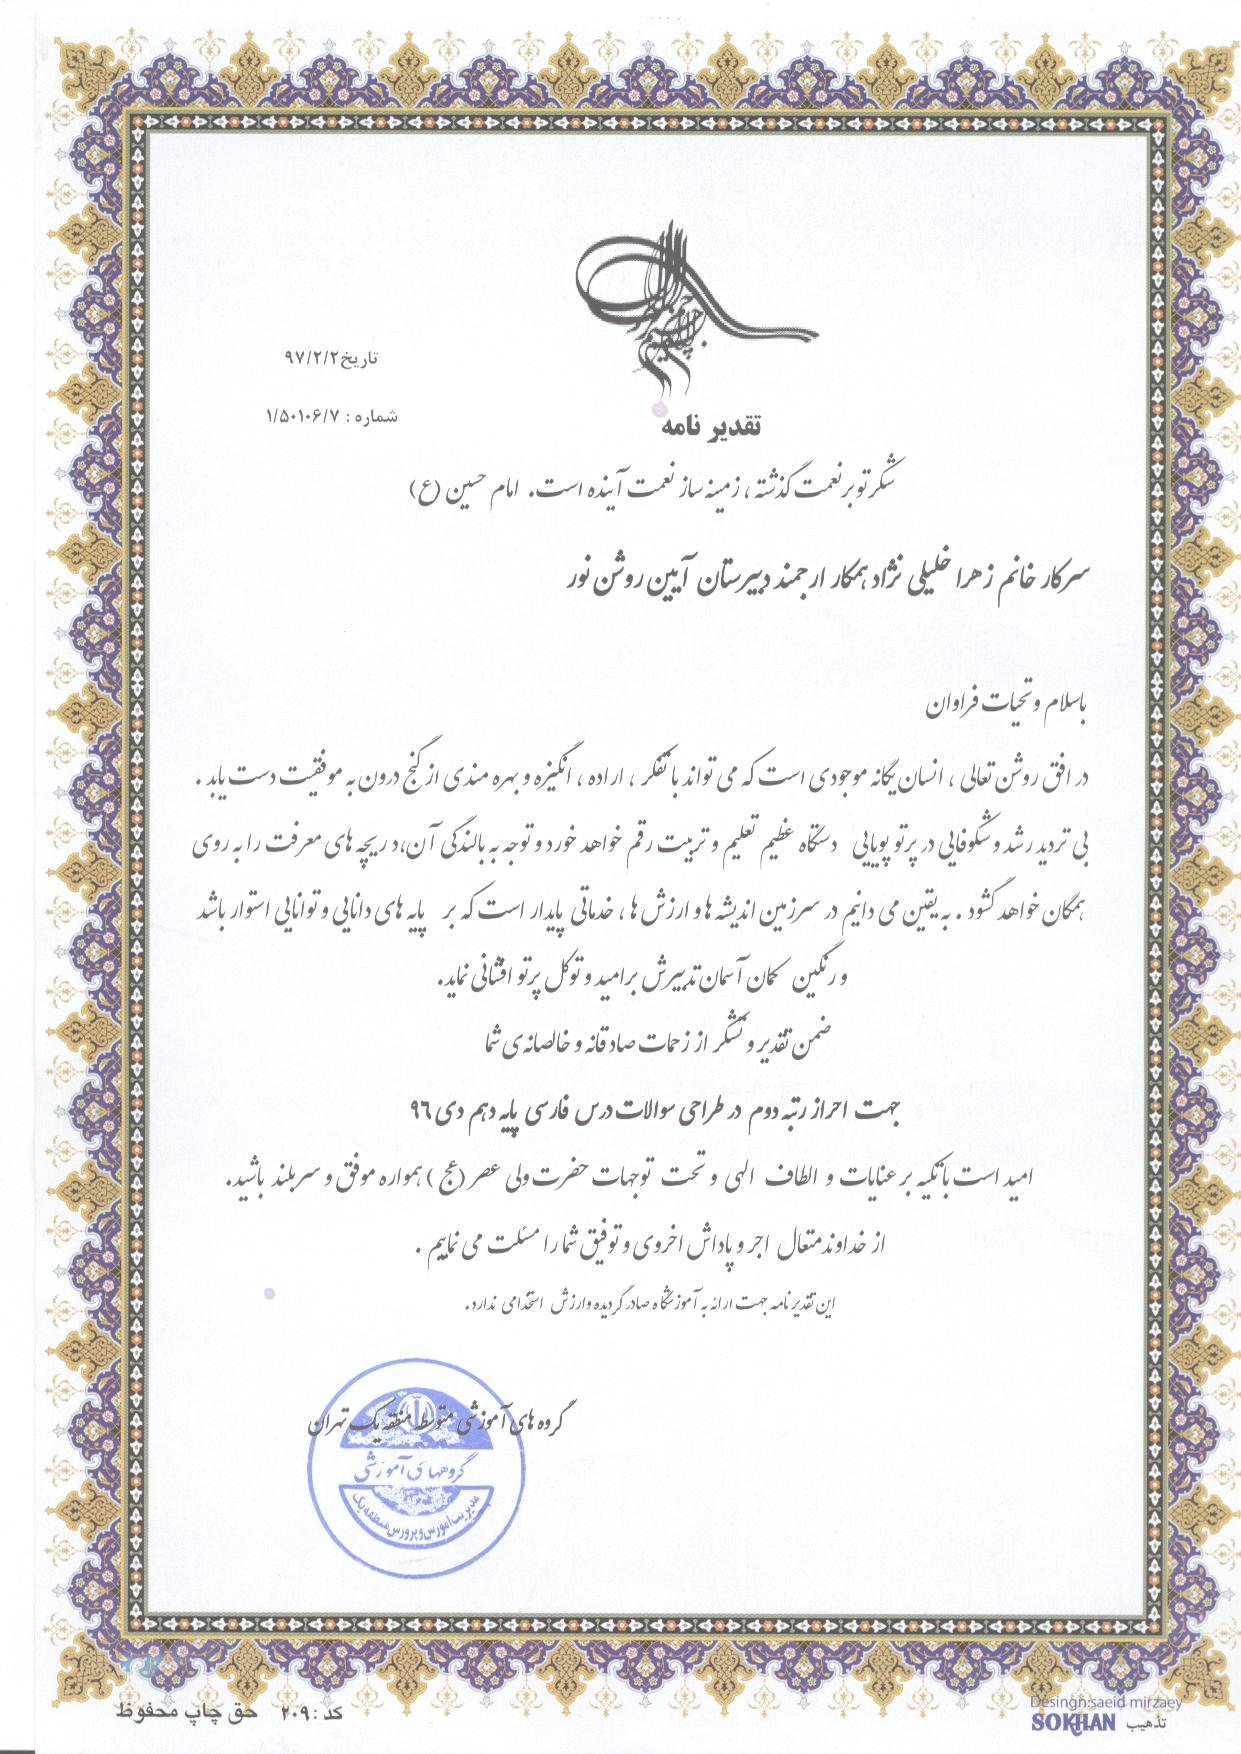 تاریخ ۹۷/۲/۲
شماره : ۱/۵۰۱۰۶/۷
تقدیر نامه
شکر تو بر نعمت گذشته ، زمینه ساز نعمت آینده است. امام حسین (ع)
سرکار خانم زهرا خلیلی نژاد همکار ارجمند دبیرستان آیین روشن نور
باسلام و تحیات فراوان
در افق روشن تعالی ، انسان یگانه موجودی است که می تواند با تفکر ، اراده ، انگیزه و بهره مندی از گنج درون به موفقیت دست یابد .
بی تردید رشد و شکوفایی در پرتو پویایی دستگاه عظیم تعلیم و تربیت رقم خواهد خورد و توجه به بالندگی آن، دریچه های معرفت را به روی
همگان خواهد گشود . به یقین می دانیم در سرزمین اندیشه ها و ارزش ها ، خدماتی پایدار است که بر پایه های دانایی و توانایی استوار باشد
و رنگین کمان آسمان تدبیرش بر امید و توکل پرتو افشانی نماید.
ضمن تقدیر و تشکر از زحمات صادقانه و خالصانه ی شما
جهت احراز رتبه دوم در طراحی سوالات درس فارسی پایه دهم دی ۹۶
امید است با تکیه بر عنایات و الطاف الهی و تحت توجهات حضرت ولی عصر (عج) همواره موفق و سربلند باشید.
از خداوند متعال اجر و پاداش اخروی و توفیق شما را مسئلت می نماییم .
این تقدیر نامه جهت ارائه به آموزشگاه صادر گردیده و ارزش استخدامی ندارد.
گروه های آموزشی متوسطه منطقه یک تهران
گروههای آموزشی
مدیریت آموزش و پرورش منطقه یک
کد : ۲۰۹ حق چاپ محفوظ
Desingn:saeid mirzaey
تذهیب SOKHAN